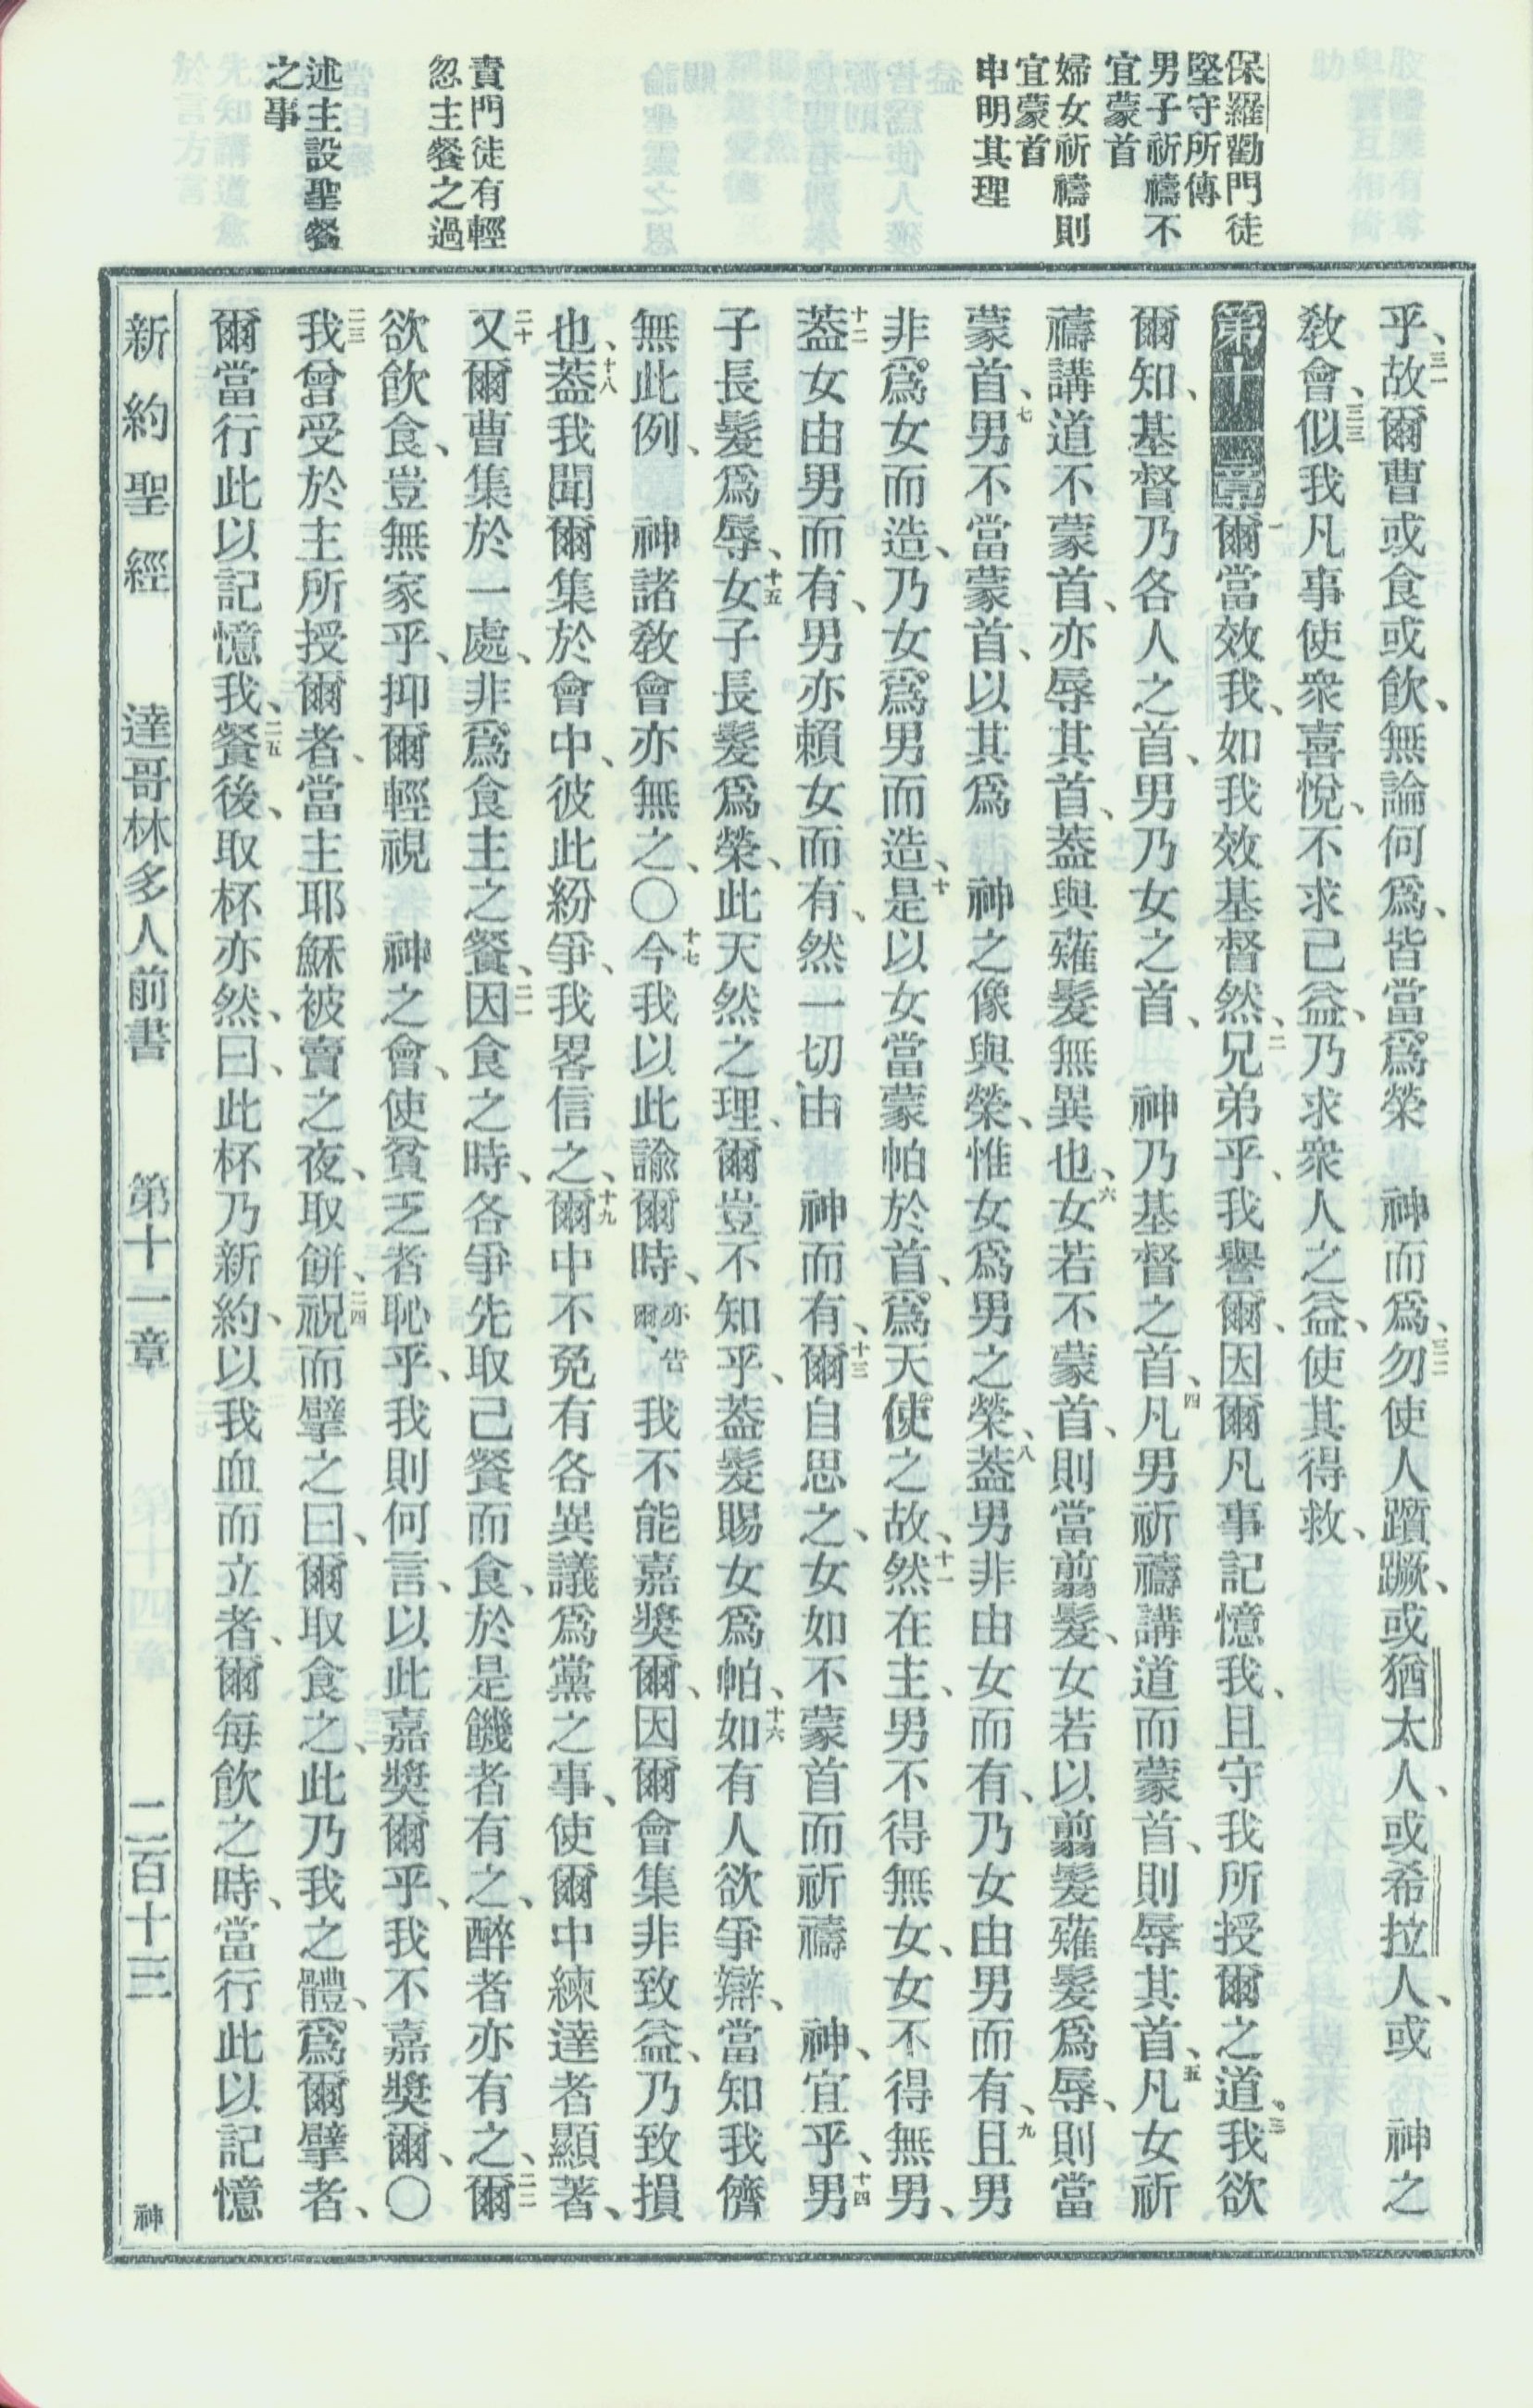 保羅勸門徒
堅守所傳
男子祈禱不
宜蒙首
婦女祈禱則
宜蒙首
申明其理
責門徒有輕
忽主餐之過
述主設聖餐
之事
乎、三一故爾曹或食或飲、無論何爲、皆當爲榮　神而爲、三二勿使人躓蹶、或猶太人、或希拉人、或　神之
教會、三三似我凡事使衆喜悅、不求己益、乃求衆人之益、使其得救、
第十一章一爾當效我、如我效基督然、二兄弟乎、我譽爾、因爾凡事記憶我、且守我所授爾之道。三我欲
爾知、基督乃各人之首、男乃女之首、　神乃基督之首、四凡男祈禱講道而蒙首、則辱其首、五凡女祈
禱講道不蒙首、亦辱其首、蓋與薙髮無異也、六女若不蒙首、則當翦髮、女若以翦髮薙髮爲辱、則當
蒙首、七男不當蒙首、以其爲　神之像與榮、惟女爲男之榮、八蓋男非由女而有、乃女由男而有、九且男
非爲女而造、乃女爲男而造、十是以女當蒙帕於首、爲天使之故、十一然在主、男不得無女、女不得無男、
十二蓋女由男而有、男亦賴女而有、然一切由　神而有、十三爾自思之、女如不蒙首而祈禱　神、宜乎、十四男
子長髮爲辱、十五女子長髮爲榮、此天然之理、爾豈不知乎、蓋髮賜女爲帕、十六如有人欲爭辯、當知我儕
無此例、　神諸教會亦無之、〇十七今我以此諭爾時、亦、告爾、我不能嘉獎爾、因爾會集非致益、乃致損
也、十八蓋我聞爾集於會中、彼此紛爭、我畧信之、十九爾中不免有各異議爲黨之事、使爾中練達者顯著、
二十又爾曹集於一處、非爲食主之餐、二一因食之時、各爭先取己餐而食、於是饑者有之、醉者亦有之、二二爾
欲飲食、豈無家乎、抑爾輕視　神之會、使貧乏者恥乎、我則何言、以此嘉獎爾乎、我不嘉獎爾、〇
二三我曾受於主所授爾者、當主耶穌被賣之夜、取餅、二四祝而擘之曰、爾取食之、此乃我之體、爲爾擘者、
爾當行此以記憶我、二五餐後、取杯亦然、曰、此杯乃新約、以我血而立者、爾每飲之時、當行此以記憶
新約聖經　達哥林多人前書　第十一章　二百十三　神